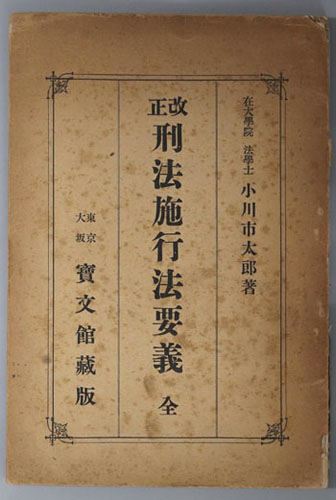 在大學院 法學士 小川市太郎著
改正 刑法施行法要義 全
東京 大坂 寶文館藏版